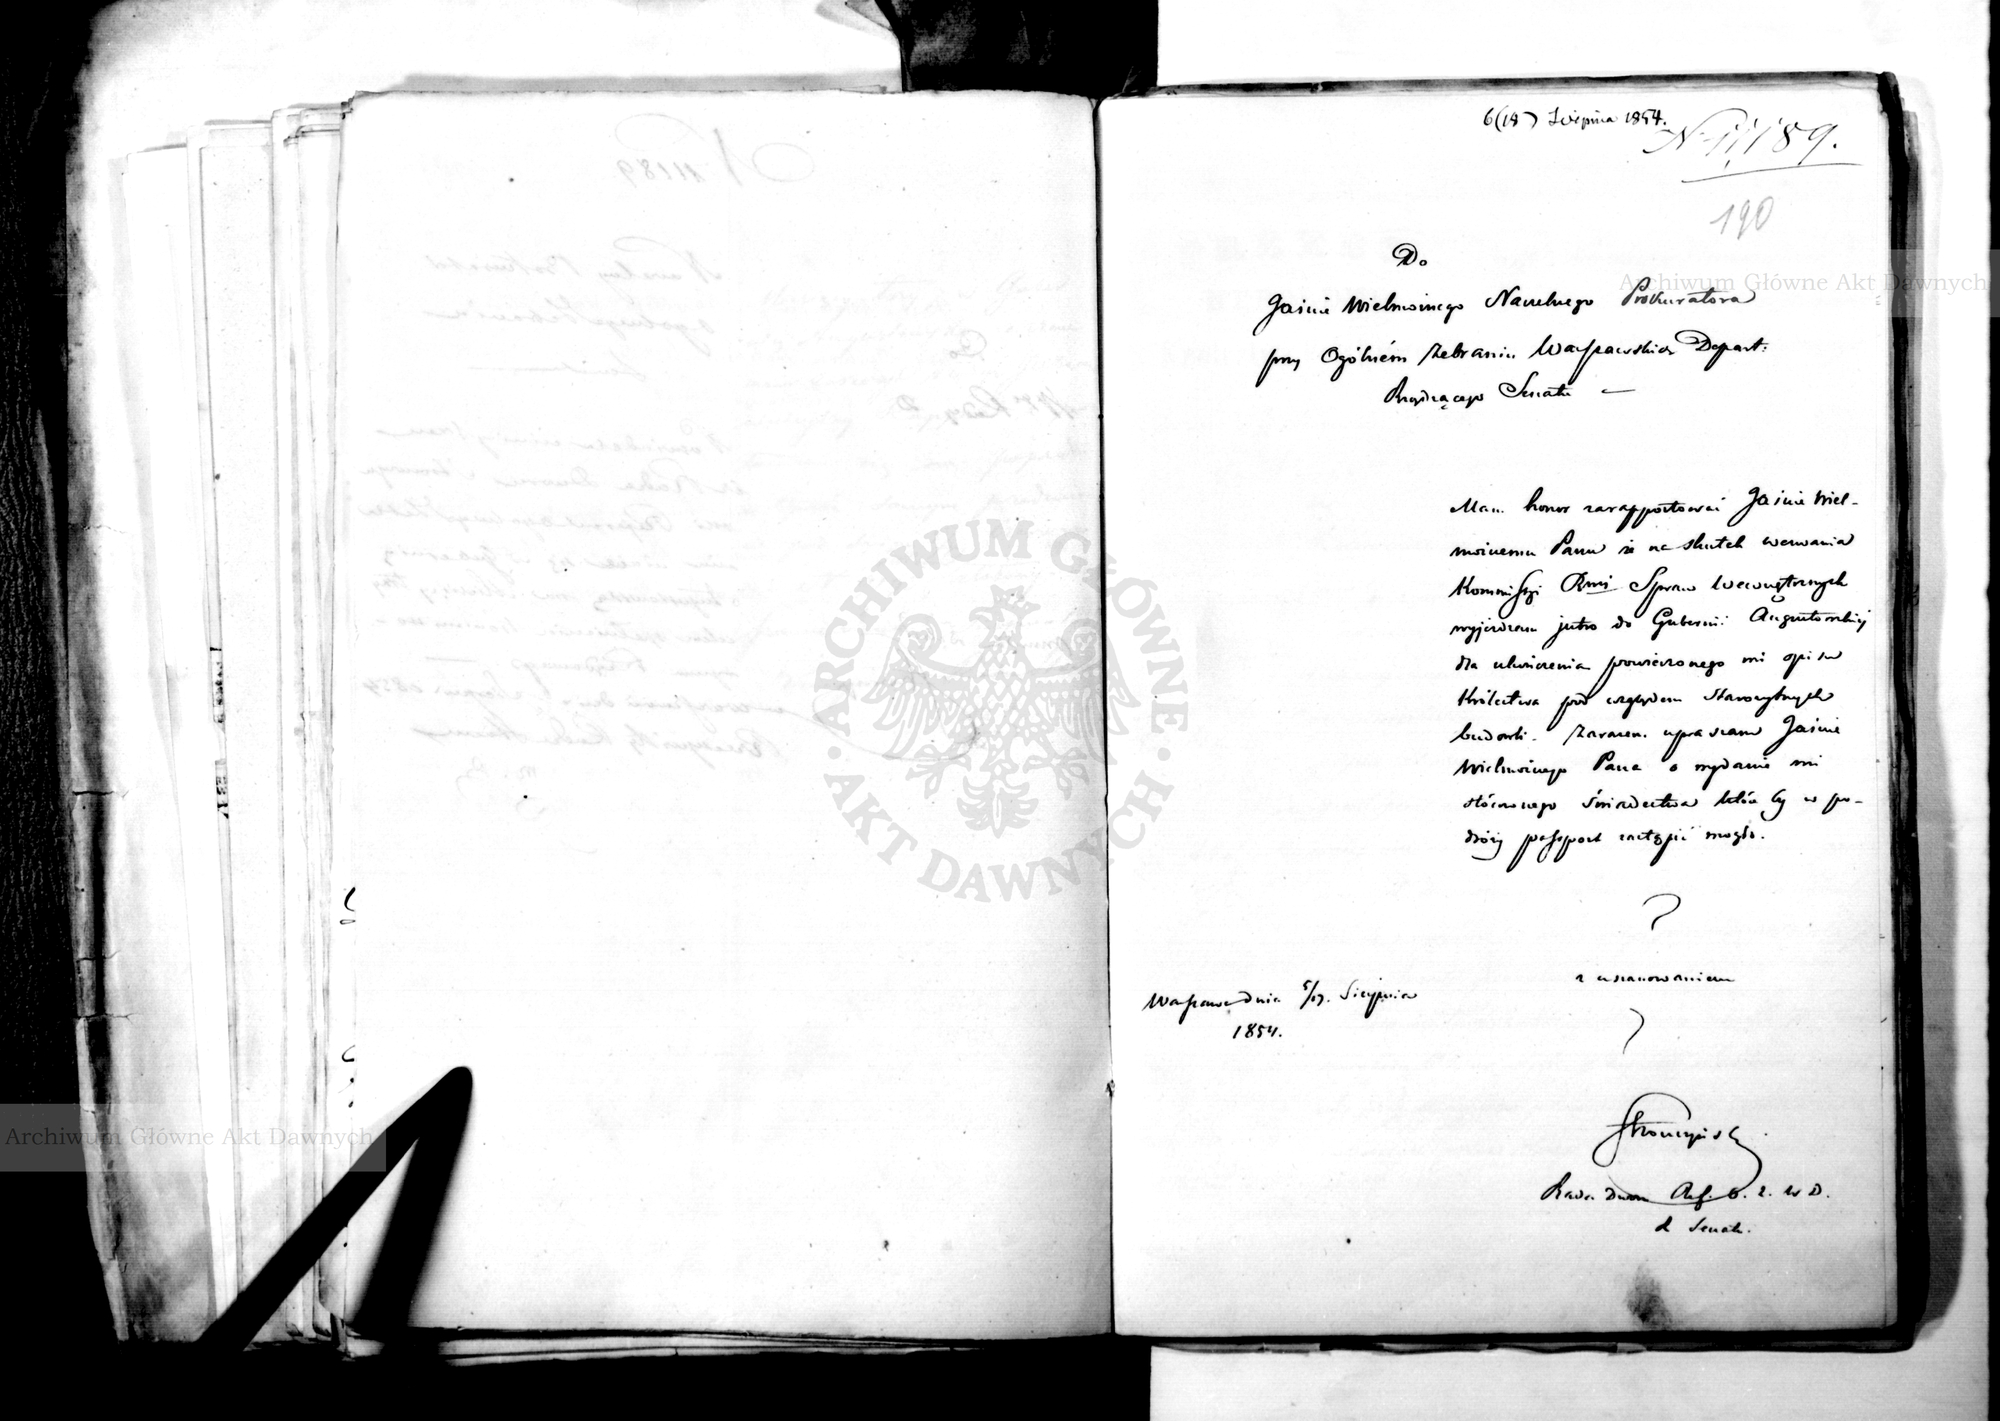 6(18) Sierpnia 1854.
N 11189.
190
Do
Jaśnie Wielmożnego Naczelnego Prokuratora
przy Ogólném Zebraniu Warszawskich Depart:
Rządzącego Senatu
Mam honor zarapportować Jaśnie Wiel-
możnemu Panu iż na skutek wezwania
Kommissyi Spraw Wewnętrznych
wyjeżdżam jutro do Gubernii Augustowskiej
dla ukończenia powierzonego mi opisu
Królestwa pod względem Starożytnych
budowli. Zarazem upraszam Jaśnie
Wielmożnego Pana o wydanie mi
stósownego świadectwa które by w po-
dróży passport zastąpić mogło.
z uszanowaniem
Warszawa dnia 5/17. Sierpnia
1854.
Stronczyński
Radca Dworu
Senatu.
Archiwum Główne Akt Dawnych
ARCHIWUM GŁÓWNE
AKT DAWNYCH
Archiwum Główne Akt Dawnych